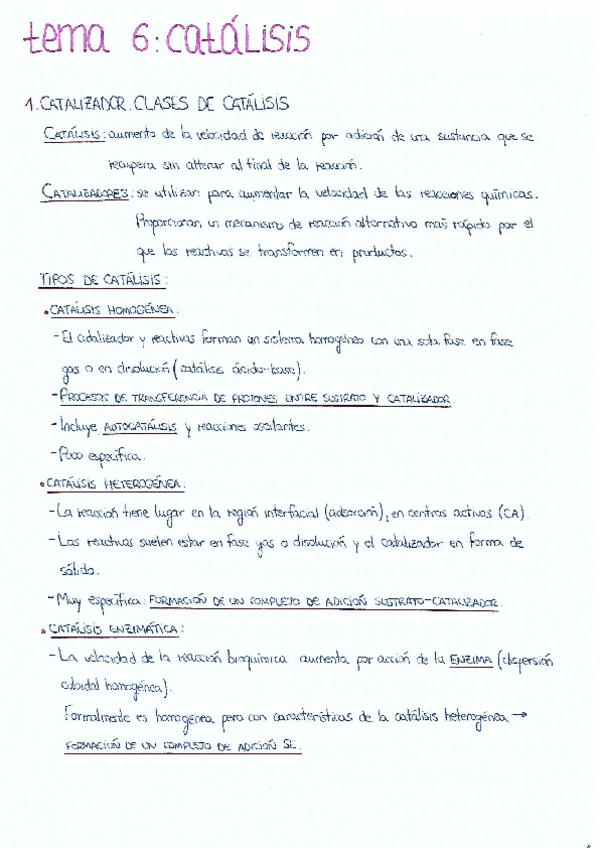 tema 6: catálisis
1. CATALIZADOR. CLASES DE CATÁLISIS
CATÁLISIS: aumento de la velocidad de reacción por adición de una sustancia que se
recupera sin alterar al final de la reacción.
CATALIZADORES: se utilizan para aumentar la velocidad de las reacciones químicas.
Proporcionan un mecanismo de reacción alternativo más rápido por el
que los reactivos se transformen en productos.
TIPOS DE CATÁLISIS:
• CATÁLISIS HOMOGÉNEA:
- El catalizador y reactivos forman un sistema homogéneo con una sola fase en fase
gas o en disolución (catálisis ácido-base).
- PROCESOS DE TRANSFERENCIA DE PROTONES ENTRE SUSTRATO Y CATALIZADOR
- Incluye AUTOCATÁLISIS y reacciones oscilantes.
- Poco específica.
• CATÁLISIS HETEROGÉNEA:
- La reacción tiene lugar en la región interfacial (adsorción), en centros activos (CA).
- Los reactivos suelen estar en fase gas o disolución y el catalizador en forma de
sólido.
- Muy específica: FORMACIÓN DE UN COMPLEJO DE ADICIÓN SUSTRATO-CATALIZADOR
• CATÁLISIS ENZIMÁTICA:
- La velocidad de la reacción bioquímica aumenta por acción de la ENZIMA (dispersión
coloidal homogénea).
Formalmente es homogénea pero con características de la catálisis heterogénea →
FORMACIÓN DE UN COMPLEJO DE ADICIÓN SE.